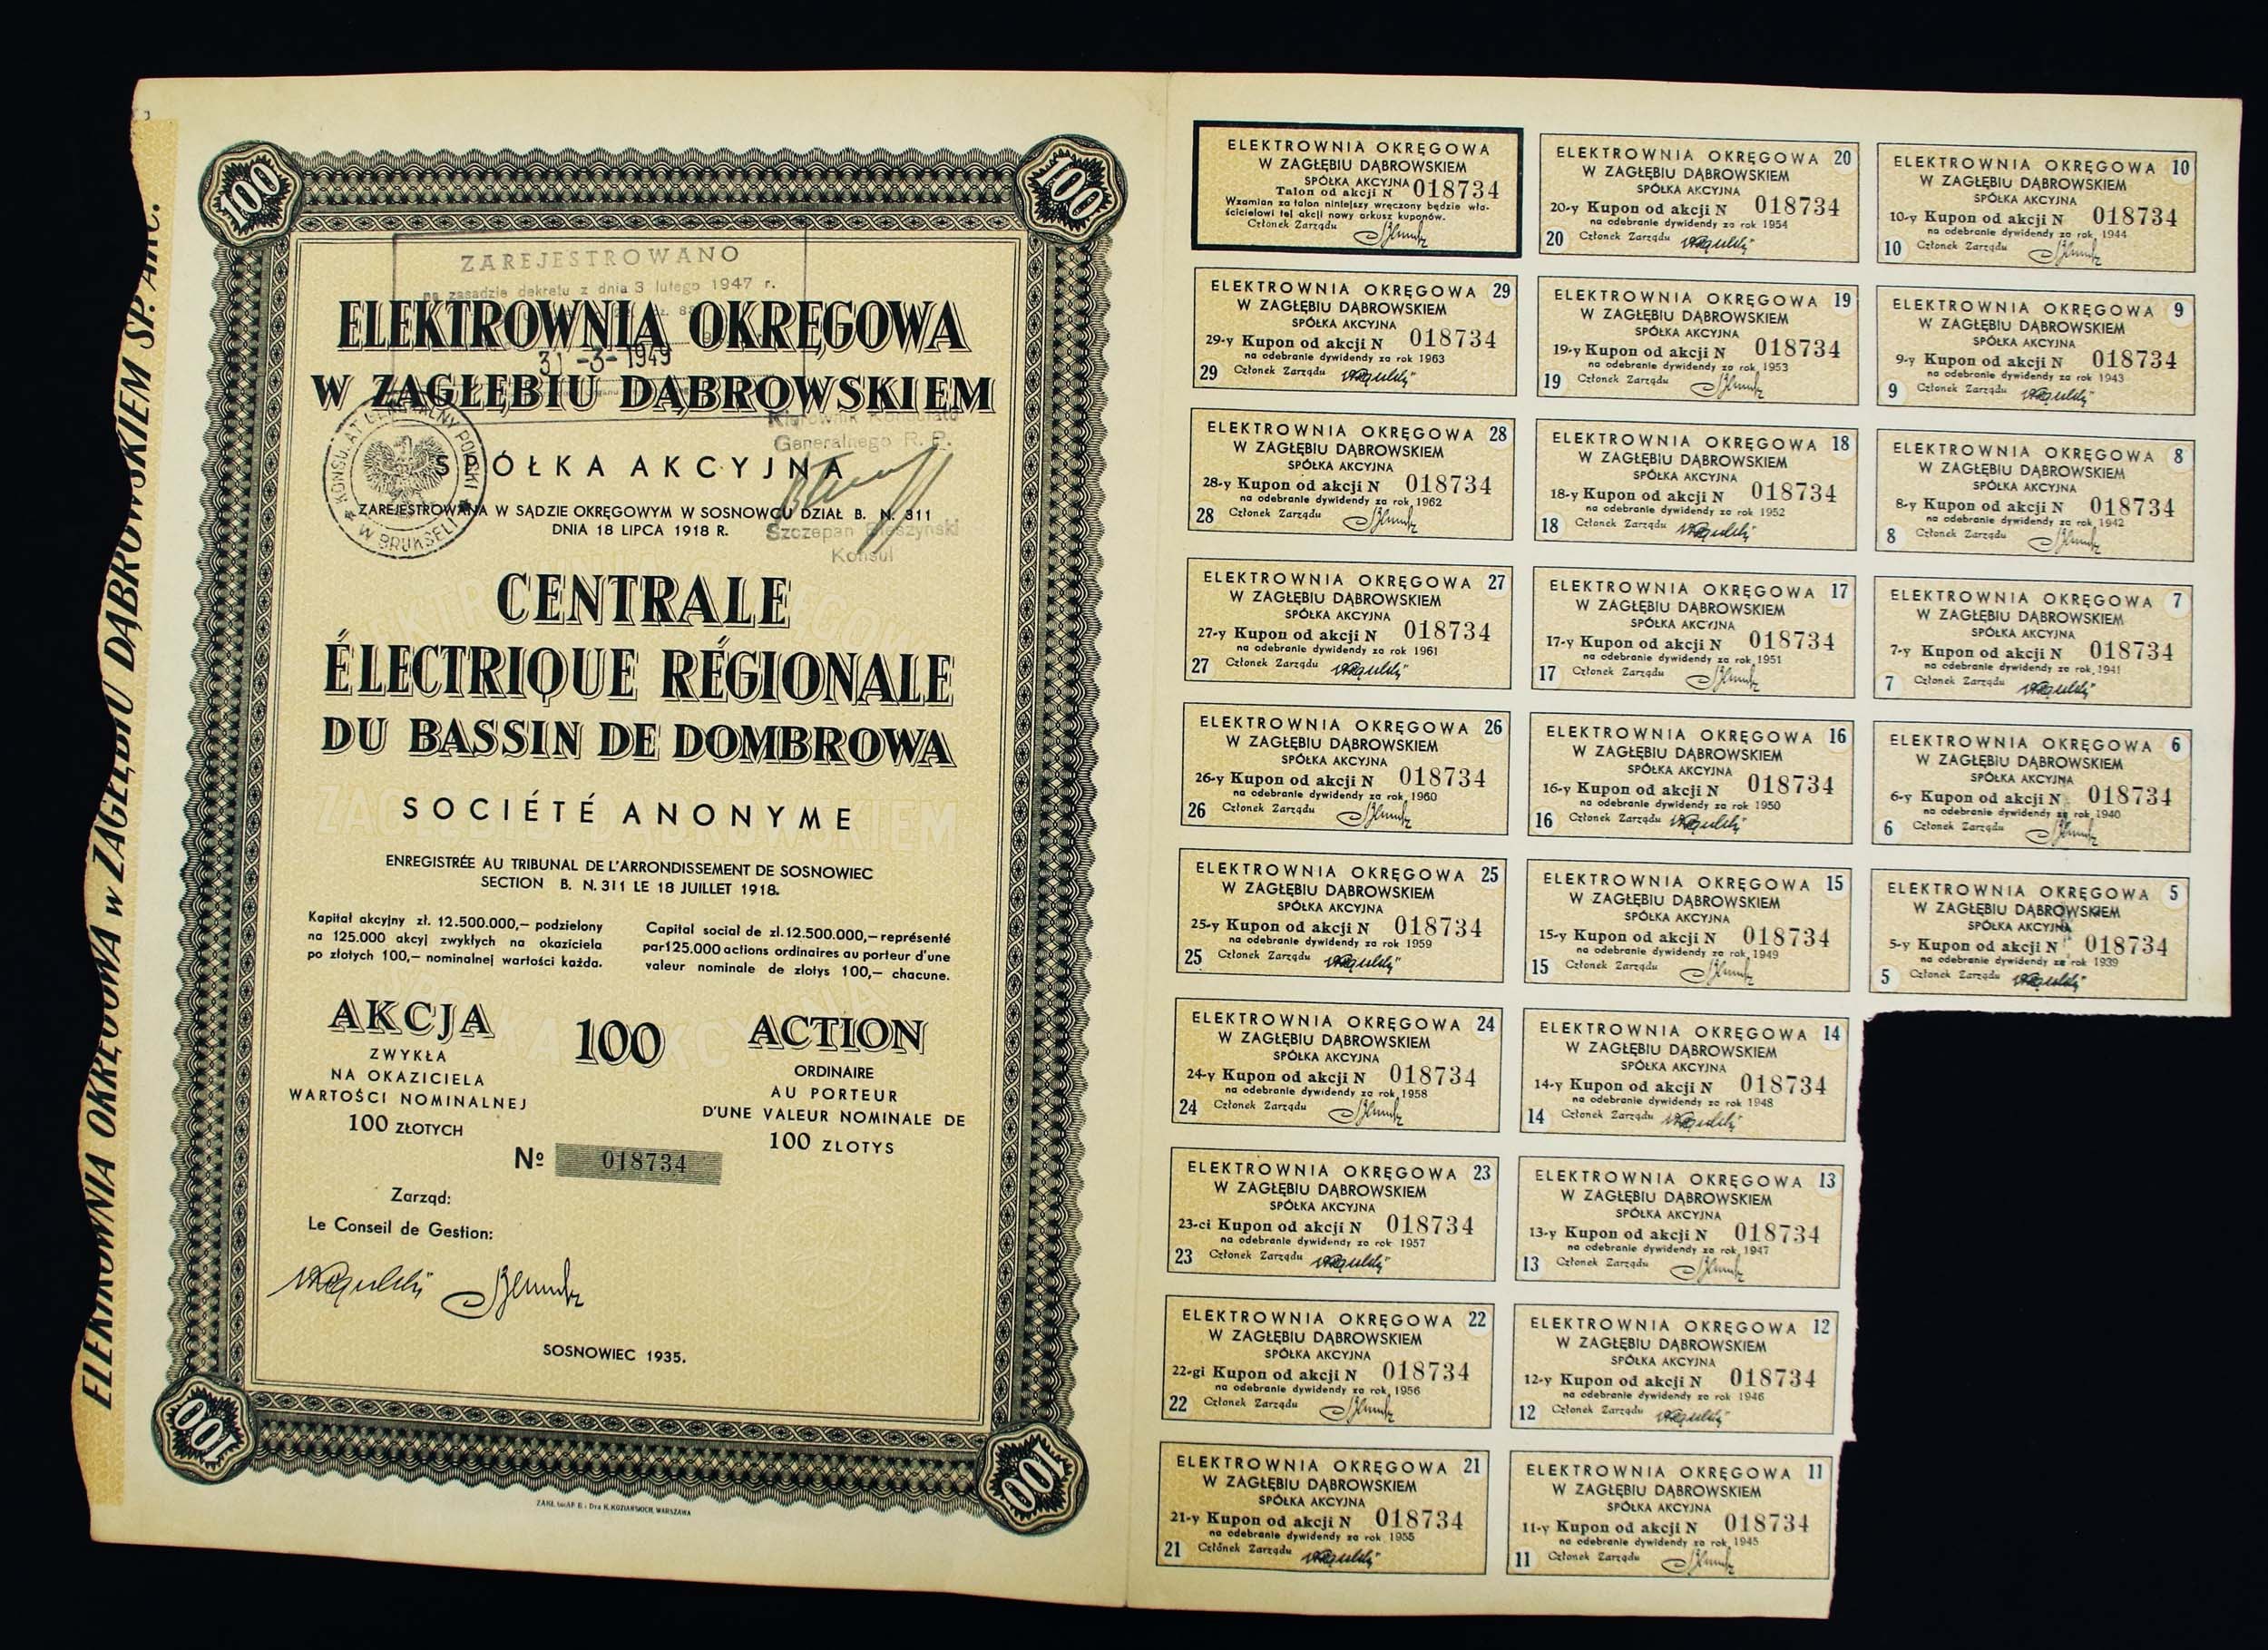 ELEKTROWNIA OKRĘGOWA w ZAGŁĘBIU DĄBROWSKIEM SP. AKC.
100
100
ZAREJESTROWANO
na zasadzie dekretu z dnia 3 lutego 1947 r.
ELEKTROWNIA OKRĘGOWA
31 -3- 1949
W ZAGŁĘBIU DĄBROWSKIEM
Kierownik Konsulatu
Generalnego R. P.
KONSULAT GENERALNY POLSKI
W BRUKSELI
SPÓŁKA AKCYJNA
ZAREJESTROWANA W SĄDZIE OKRĘGOWYM W SOSNOWCU DZIAŁ B. N. 311
DNIA 18 LIPCA 1918 R.
Szczepan
Konsul
CENTRALE
ÉLECTRIQUE RÉGIONALE
DU BASSIN DE DOMBROWA
SOCIÉTÉ ANONYME
ENREGISTRÉE AU TRIBUNAL DE L'ARRONDISSEMENT DE SOSNOWIEC
SECTION B. N. 311 LE 18 JUILLET 1918.
Kapitał akcyjny zł. 12.500.000,– podzielony
na 125.000 akcyj zwykłych na okaziciela
po złotych 100,– nominalnej wartości każda.
Capital social de zl. 12.500.000,– représenté
par 125.000 actions ordinaires au porteur d'une
valeur nominale de zlotys 100,– chacune.
AKCJA
ZWYKŁA
NA OKAZICIELA
WARTOŚCI NOMINALNEJ
100 ZŁOTYCH
100
ACTION
ORDINAIRE
AU PORTEUR
D'UNE VALEUR NOMINALE DE
100 ZLOTYS
Nº 018734
Zarząd:
Le Conseil de Gestion:
SOSNOWIEC 1935.
100
100
ELEKTROWNIA OKRĘGOWA
W ZAGŁĘBIU DĄBROWSKIEM
SPÓŁKA AKCYJNA
Talon od akcji N 018734
Wzamian za talon niniejszy wręczony będzie wła-
ścicielowi tej akcji nowy arkusz kuponów.
Członek Zarządu
ELEKTROWNIA OKRĘGOWA 29
W ZAGŁĘBIU DĄBROWSKIEM
SPÓŁKA AKCYJNA
29-y Kupon od akcji N 018734
na odebranie dywidendy za rok 1963
29 Członek Zarządu
ELEKTROWNIA OKRĘGOWA 28
W ZAGŁĘBIU DĄBROWSKIEM
SPÓŁKA AKCYJNA
28-y Kupon od akcji N 018734
na odebranie dywidendy za rok 1962
28 Członek Zarządu
ELEKTROWNIA OKRĘGOWA 27
W ZAGŁĘBIU DĄBROWSKIEM
SPÓŁKA AKCYJNA
27-y Kupon od akcji N 018734
na odebranie dywidendy za rok 1961
27 Członek Zarządu
ELEKTROWNIA OKRĘGOWA 26
W ZAGŁĘBIU DĄBROWSKIEM
SPÓŁKA AKCYJNA
26-y Kupon od akcji N 018734
na odebranie dywidendy za rok 1960
26 Członek Zarządu
ELEKTROWNIA OKRĘGOWA 25
W ZAGŁĘBIU DĄBROWSKIEM
SPÓŁKA AKCYJNA
25-y Kupon od akcji N 018734
na odebranie dywidendy za rok 1959
25 Członek Zarządu
ELEKTROWNIA OKRĘGOWA 24
W ZAGŁĘBIU DĄBROWSKIEM
SPÓŁKA AKCYJNA
24-y Kupon od akcji N 018734
na odebranie dywidendy za rok 1958
24 Członek Zarządu
ELEKTROWNIA OKRĘGOWA 23
W ZAGŁĘBIU DĄBROWSKIEM
SPÓŁKA AKCYJNA
23-ci Kupon od akcji N 018734
na odebranie dywidendy za rok 1957
23 Członek Zarządu
ELEKTROWNIA OKRĘGOWA 22
W ZAGŁĘBIU DĄBROWSKIEM
SPÓŁKA AKCYJNA
22-gi Kupon od akcji N 018734
na odebranie dywidendy za rok 1956
22 Członek Zarządu
ELEKTROWNIA OKRĘGOWA 21
W ZAGŁĘBIU DĄBROWSKIEM
SPÓŁKA AKCYJNA
21-y Kupon od akcji N 018734
na odebranie dywidendy za rok 1955
21 Członek Zarządu
ELEKTROWNIA OKRĘGOWA 20
W ZAGŁĘBIU DĄBROWSKIEM
SPÓŁKA AKCYJNA
20-y Kupon od akcji N 018734
na odebranie dywidendy za rok 1954
20 Członek Zarządu
ELEKTROWNIA OKRĘGOWA 19
W ZAGŁĘBIU DĄBROWSKIEM
SPÓŁKA AKCYJNA
19-y Kupon od akcji N 018734
na odebranie dywidendy za rok 1953
19 Członek Zarządu
ELEKTROWNIA OKRĘGOWA 18
W ZAGŁĘBIU DĄBROWSKIEM
SPÓŁKA AKCYJNA
18-y Kupon od akcji N 018734
na odebranie dywidendy za rok 1952
18 Członek Zarządu
ELEKTROWNIA OKRĘGOWA 17
W ZAGŁĘBIU DĄBROWSKIEM
SPÓŁKA AKCYJNA
17-y Kupon od akcji N 018734
na odebranie dywidendy za rok 1951
17 Członek Zarządu
ELEKTROWNIA OKRĘGOWA 16
W ZAGŁĘBIU DĄBROWSKIEM
SPÓŁKA AKCYJNA
16-y Kupon od akcji N 018734
na odebranie dywidendy za rok 1950
16 Członek Zarządu
ELEKTROWNIA OKRĘGOWA 15
W ZAGŁĘBIU DĄBROWSKIEM
SPÓŁKA AKCYJNA
15-y Kupon od akcji N 018734
na odebranie dywidendy za rok 1949
15 Członek Zarządu
ELEKTROWNIA OKRĘGOWA 14
W ZAGŁĘBIU DĄBROWSKIEM
SPÓŁKA AKCYJNA
14-y Kupon od akcji N 018734
na odebranie dywidendy za rok 1948
14 Członek Zarządu
ELEKTROWNIA OKRĘGOWA 13
W ZAGŁĘBIU DĄBROWSKIEM
SPÓŁKA AKCYJNA
13-y Kupon od akcji N 018734
na odebranie dywidendy za rok 1947
13 Członek Zarządu
ELEKTROWNIA OKRĘGOWA 12
W ZAGŁĘBIU DĄBROWSKIEM
SPÓŁKA AKCYJNA
12-y Kupon od akcji N 018734
na odebranie dywidendy za rok 1946
12 Członek Zarządu
ELEKTROWNIA OKRĘGOWA 11
W ZAGŁĘBIU DĄBROWSKIEM
SPÓŁKA AKCYJNA
11-y Kupon od akcji N 018734
na odebranie dywidendy za rok 1945
11 Członek Zarządu
ELEKTROWNIA OKRĘGOWA 10
W ZAGŁĘBIU DĄBROWSKIEM
SPÓŁKA AKCYJNA
10-y Kupon od akcji N 018734
na odebranie dywidendy za rok 1944
10 Członek Zarządu
ELEKTROWNIA OKRĘGOWA 9
W ZAGŁĘBIU DĄBROWSKIEM
SPÓŁKA AKCYJNA
9-y Kupon od akcji N 018734
na odebranie dywidendy za rok 1943
9 Członek Zarządu
ELEKTROWNIA OKRĘGOWA 8
W ZAGŁĘBIU DĄBROWSKIEM
SPÓŁKA AKCYJNA
8-y Kupon od akcji N 018734
na odebranie dywidendy za rok 1942
8 Członek Zarządu
ELEKTROWNIA OKRĘGOWA 7
W ZAGŁĘBIU DĄBROWSKIEM
SPÓŁKA AKCYJNA
7-y Kupon od akcji N 018734
na odebranie dywidendy za rok 1941
7 Członek Zarządu
ELEKTROWNIA OKRĘGOWA 6
W ZAGŁĘBIU DĄBROWSKIEM
SPÓŁKA AKCYJNA
6-y Kupon od akcji N 018734
na odebranie dywidendy za rok 1940
6 Członek Zarządu
ELEKTROWNIA OKRĘGOWA 5
W ZAGŁĘBIU DĄBROWSKIEM
SPÓŁKA AKCYJNA
5-y Kupon od akcji N 018734
na odebranie dywidendy za rok 1939
5 Członek Zarządu